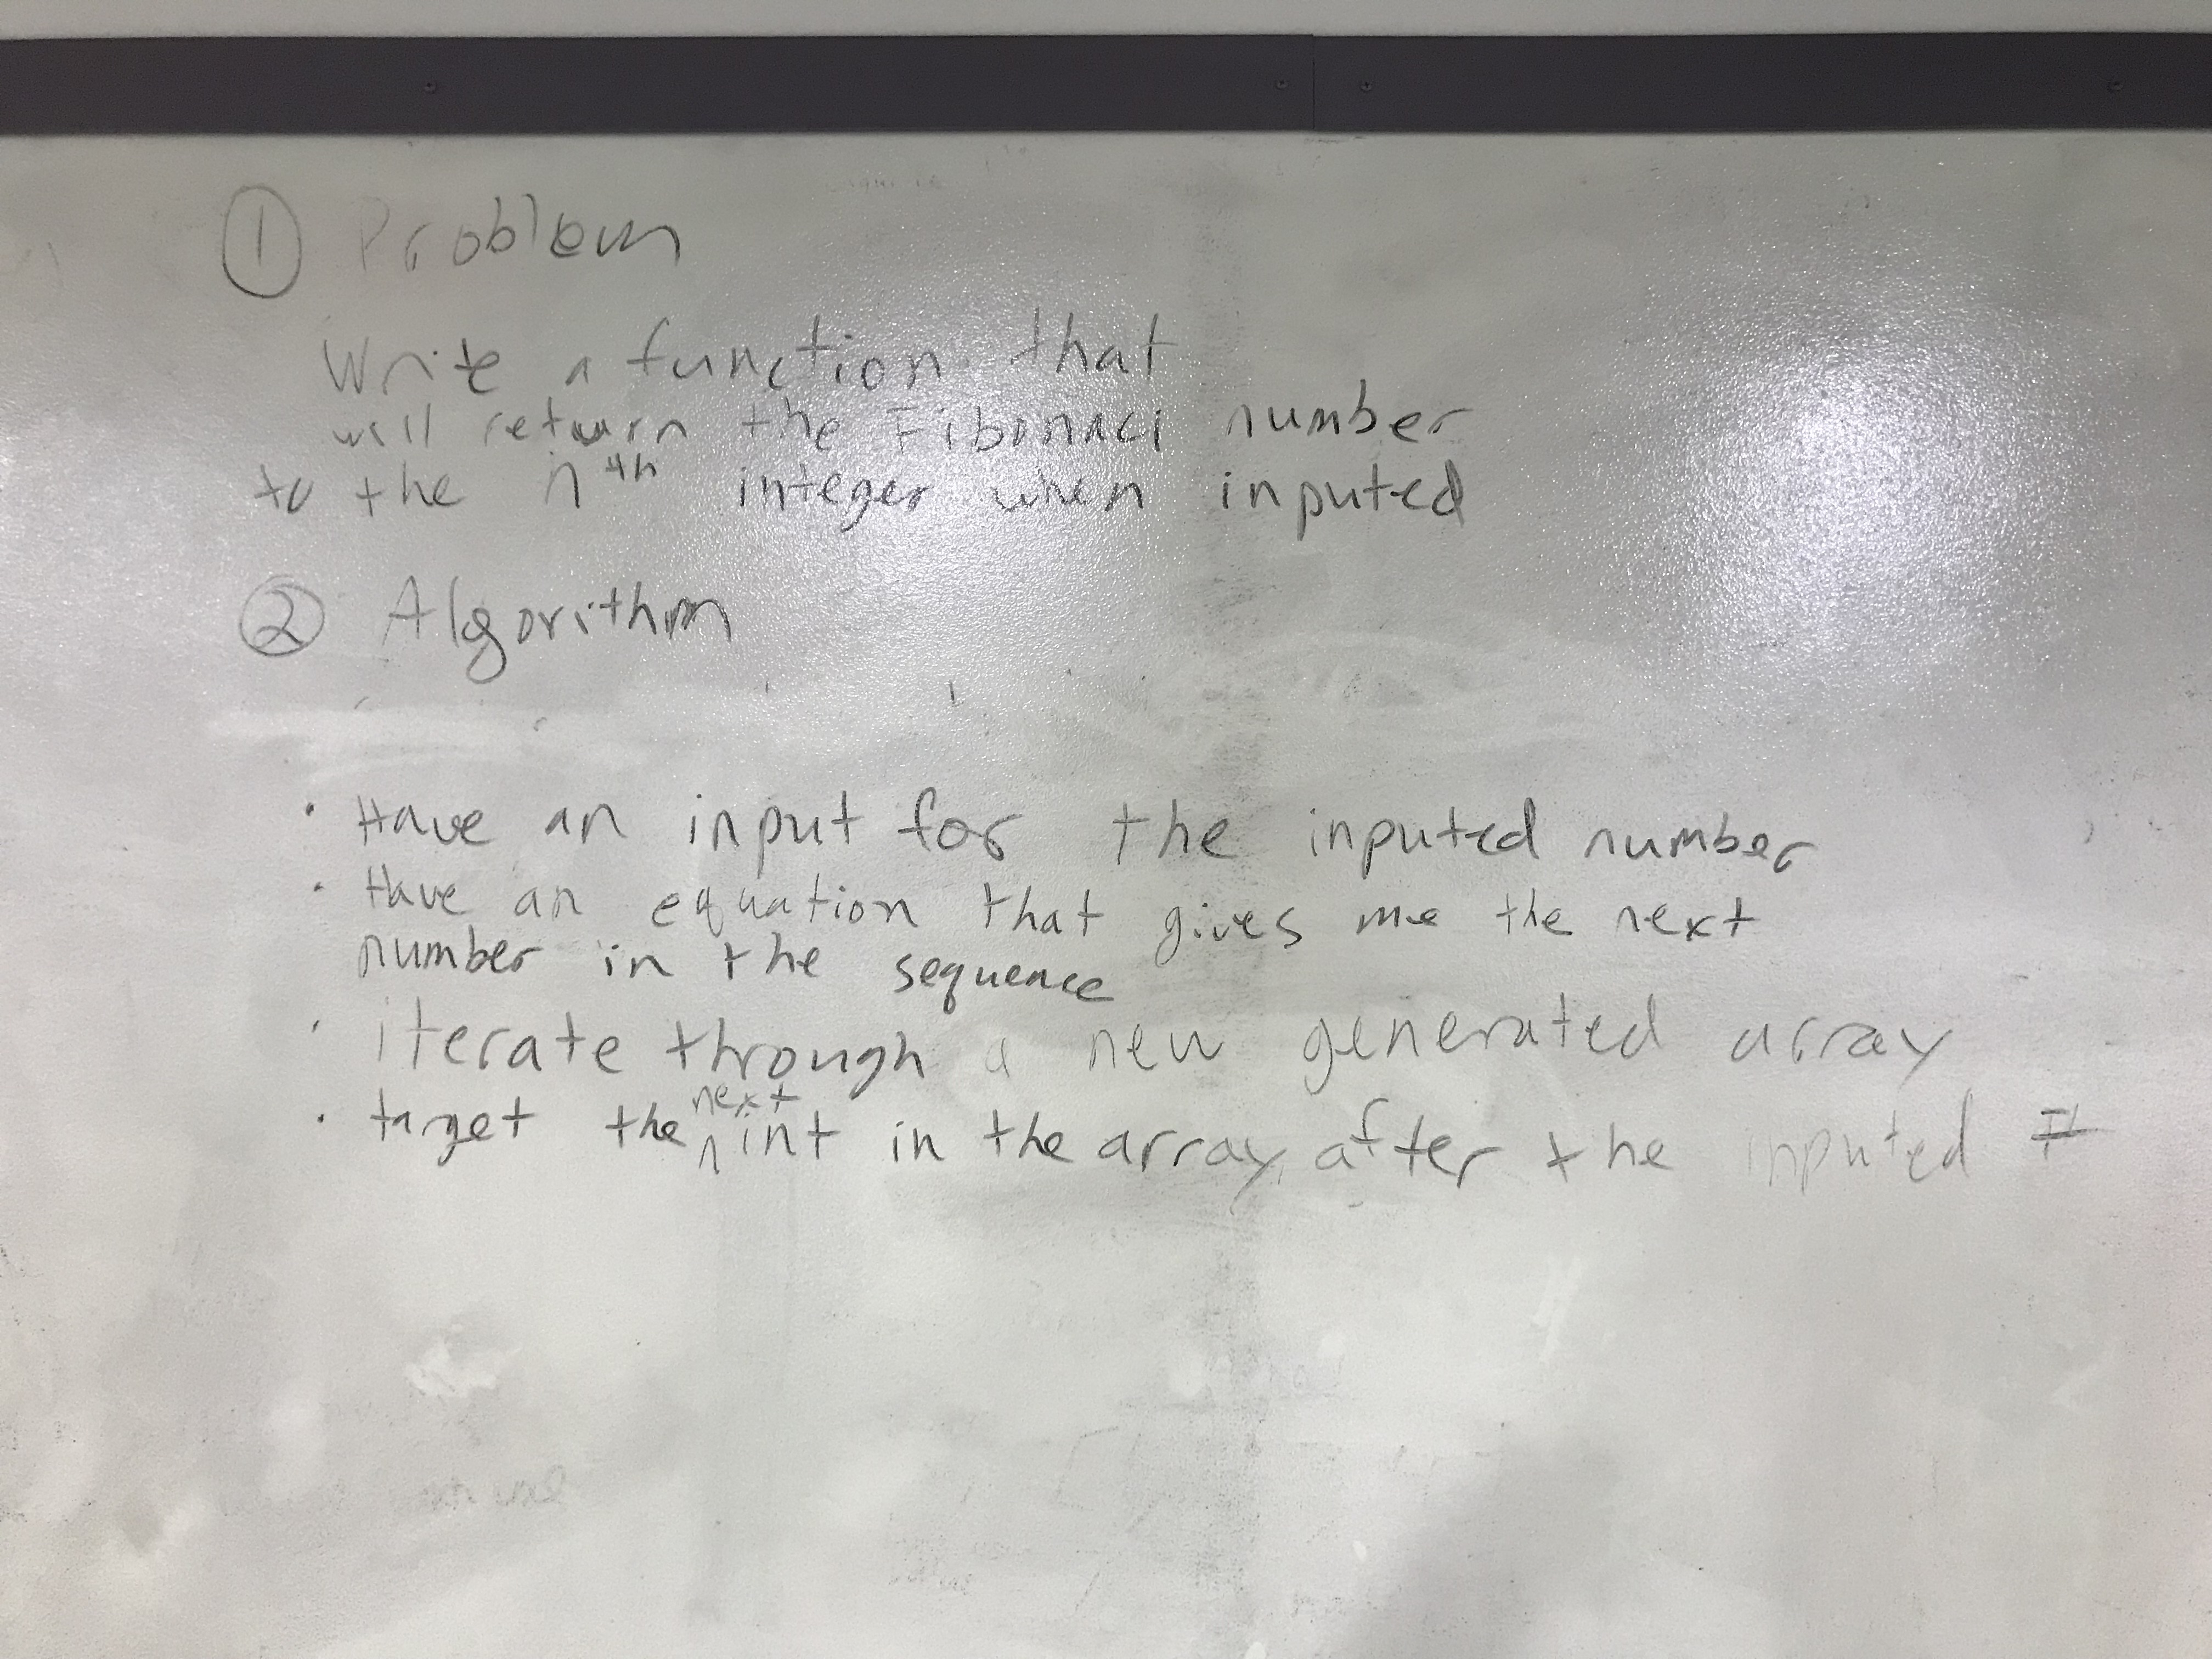 ① Problem
Write a function that
will return the Fibonaci number
to the nth integer when inputed
② Algorithm
• Have an input for the inputed number
• Have an equation that gives me the next
number in the sequence
• iterate through a new generated array
• target the ^next int in the array, after the inputed #